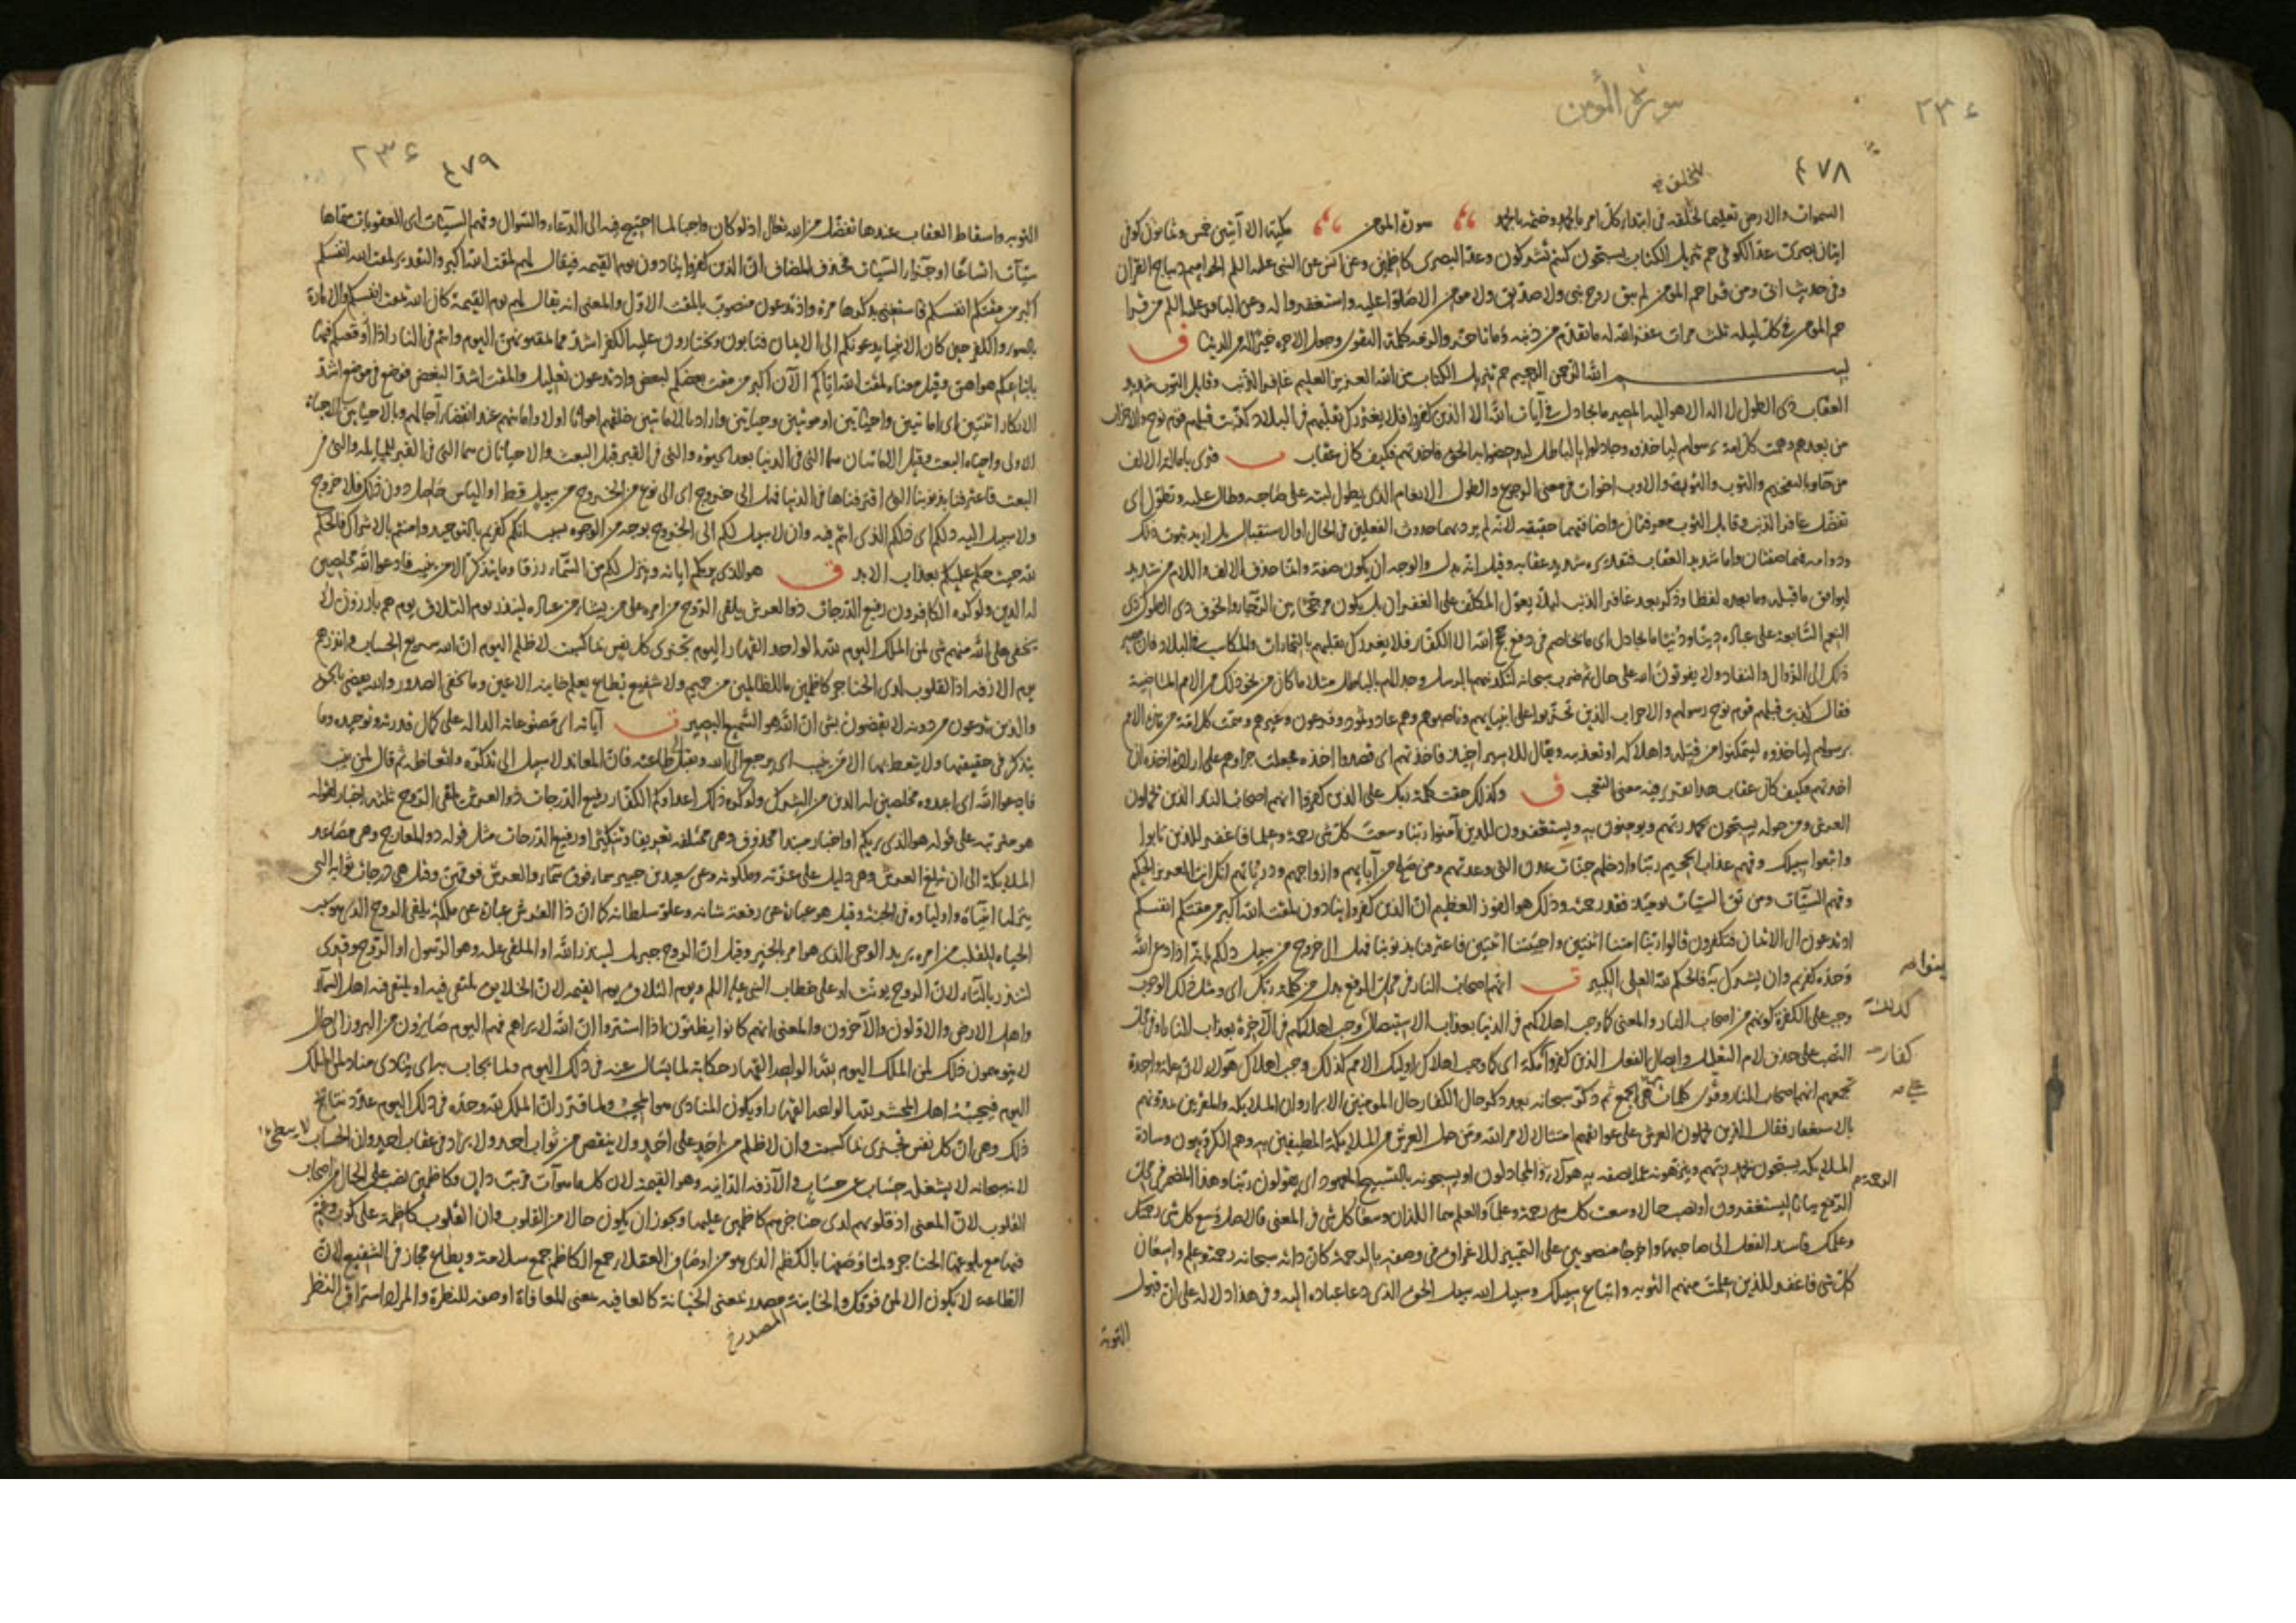 سورة المؤمن
٢٣٤
٤٧٨
السموات والارض تعليما لخلقه فى ابتداء كل امر بالحمد وختمه بالحمد سورة المؤمن مكية الا آيتين خمس وثمانون كوفى
اثنان بصرى عد الكوفى حم تنزيل الكتاب يسبحون كنتم تشركون وعد البصرى كاظمين وعن انس عن النبى عليه السلم الحواميم ديباج القران
وفى حديث ابى ومن قرا حم المؤمن لم يبق روح نبى ولا صديق ولا مؤمن الا صلوا عليه واستغفروا له وعن الباقر عليه السلم من قرا
حم المؤمن فى كل ليلة ثلث مرات غفر الله له ما تقدم من ذنبه وما تاخر والزمه كلمة التقوى وجعل الاخرة خيرا له من الدنيا ق
بسم الله الرحمن الرحيم حم تنزيل الكتاب من الله العزيز العليم غافر الذنب وقابل التوب شديد
العقاب ذى الطول لا اله الا هو اليه المصير ما يجادل فى آيات الله الا الذين كفروا فلا يغررك تقلبهم فى البلاد كذبت قبلهم قوم نوح والاحزاب
من بعدهم وهمت كل امة برسولهم لياخذوه وجادلوا بالباطل ليدحضوا به الحق فاخذتهم فكيف كان عقاب قرى بامالة الالف
من حا وبالتفخيم والتوب والتوبة والاوب اخوات فى معنى الرجوع والطول الانعام الذى يطول لبثه على صاحبه وطال عليه وتطول اى
تفضل غافر الذنب وقابل التوب معرفتان واضافتهما حقيقية لانه لم يرد بهما حدوث الفعلين فى الحال او الاستقبال بل اريد ثبوت ذلك
ودوامه فهما صفتان واما شديد العقاب فتقديره شديد عقابه وقيل انه بدل والوجه ان يكون صفة وانما حذف الالف واللام من شديد
ليوافق ما قبله وما بعده لفظا وذكر بعد غافر الذنب لئلا يعول المكلف على الغفران بل يكون مرجحا بين الرجاء والخوف ذى الطول ذى
النعم السابغة على عباده دينا ودنيا ما يجادل اى ما يخاصم فى دفع حجج الله الا الكفار فلا يغررك تقلبهم بالتجارات والمكاسب فى البلاد فان مصير
ذلك الى الزوال والنفاد ولا يفوتون الله على حال ثم ضرب سبحانه لتكذيبهم بالرسل وجدالهم بالباطل مثلا ما كان من نحو ذلك من الامم الماضية
فقال كذبت قبلهم قوم نوح رسولهم والاحزاب الذين تحزبوا على انبيايهم وناصبوهم وهم عاد وثمود وفرعون وغيرهم وهمت كل امة من هذه الامم
برسولهم لياخذوه ليتمكنوا من قتله واهلاكه او تعذيبه ويقال للاسير اخيذ فاخذتهم اى قصدوا اخذه فجعلت جزاءهم على ارادة اخذه ان
اخذتهم فكيف كان عقاب هذا تقرير فيه معنى التعجب ق وكذلك حقت كلمة ربك على الذين كفروا انهم اصحاب النار الذين يحملون
العرش ومن حوله يسبحون بحمد ربهم ويومنون به ويستغفرون للذين آمنوا ربنا وسعت كل شى رحمة وعلما فاغفر للذين تابوا
واتبعوا سبيلك وقهم عذاب الجحيم ربنا وادخلهم جنات عدن التى وعدتهم ومن صلح من آبايهم وازواجهم وذرياتهم انك انت العزيز الحكيم
وقهم السيآت ومن تق السيآت يومئذ فقد رحمته وذلك هو الفوز العظيم ان الذين كفروا ينادون لمقت الله اكبر من مقتكم انفسكم
اذ تدعون الى الايمان فتكفرون قالوا ربنا امتنا اثنتين واحييتنا اثنتين فاعترفنا بذنوبنا فهل الى خروج من سبيل ذلكم بانه اذا دعى الله
وحده كفرتم وان يشرك به تومنوا فالحكم لله العلى الكبير ق انهم اصحاب النار فى محل الرفع بدل من كلمة ربك اى ومثل ذلك الوجوب
وجب على الكفرة كونهم من اصحاب النار والمعنى كما وجب اهلاكهم فى الدنيا بعذاب الاستيصال وجب اهلاكهم فى الآخرة بعذاب النار او فى محل
النصب على حذف لام التعليل وايصال الفعل الذين كفروا مكة اى كما وجب اهلاك اوليك الامم كذلك وجب اهلاك هؤلاء لان علة واحدة
تجمعهم انهم اصحاب النار وقرى كلمات على الجمع ثم ذكر سبحانه بعد ذكر حال الكفار حال المومنين الابرار وان الملايكة والمقربين يمدونهم
بالاستغفار فقال الذين يحملون العرش على عواتقهم امتثالا لامر الله ومن حول العرش من الملايكة المطيفين به وهم الكروبيون وسادة
الملايكة يسبحون بحمد ربهم وينزهونه عما يصفه به هؤلاء المجادلون او يسبحونه بالتسبيح المعهود اى يقولون ربنا وهذا المضمر فى محل
الرفع بيانا ليستغفرون او نصب حالا وسعت كل شى رحمة وعلما والعلم هما اللذان وسعا كل شى فى المعنى فالاصل وسع كل شى رحمتك
وعلمك فاسند الفعل الى صاحبهما واخرجا منصوبين على التمييز للاغراق فى وصفه بالرحمة كان ذاته سبحانه رحمة وعلم واسعان
كل شى فاغفر للذين علمت منهم التوبة واتباع سبيلك وسبيل الله سبيل الحق الذى دعا عباده اليه وفى هذا دلالة على ان قبول
التوبة
كذلك
كفار
الرحمة
٢٣٤
٤٧٩
التوبة واسقاط العقاب عندها تفضل من الله تعالى اذ لو كان واجبا لما احتيج فيه الى الدعاء والسؤال وقهم السيآت اى العقوبات سماها
سيآت اتساعا او جزاء السيآت فحذف المضاف ان الذين كفروا ينادون يوم القيمة فيقال لهم لمقت الله اكبر والتقدير لمقت الله انفسكم
اكبر من مقتكم انفسكم فاستغنى بذكرها مرة واذ تدعون منصوب بالمقت الاول والمعنى انه يقال لهم يوم القيمة كان الله يمقت انفسكم الامارة
بالسوء والكفر حين كان الانبيا يدعونكم الى الايمان فتابون وتختارون عليه الكفر اشد مما تمقتونهن اليوم وانتم فى النار اذ اوقعتكم فيها
باتباعكم هواهن وقيل معناه لمقت الله اياكم الآن اكبر من مقت بعضكم لبعض واذ تدعون تعليل والمقت اشد البغض فوضع فى موضع اشد
الانكار اثنتين اى اماتتين واحياتين او موتتين وحياتين واراد بالاماتتين خلقهم امواتا اولا واماتتهم عند انقضاء آجالهم وبالاحياتين الاحياة
الاولى واحياء البعث وقيل الاماتتان هما التى فى الدنيا بعد الحيوة والتى فى القبر قبل البعث والاحياتان هما التى فى القبر للمساءلة والتى فى
البعث فاعترفنا بذنوبنا التى اقترفناها فى الدنيا فهل الى خروج اى الى نوع من الخروج من سبيل قط او الياس حاصل دون ذلك فلا خروج
ولا سبيل اليه ذلكم اى ذلكم الذى انتم فيه وان لا سبيل لكم الى الخروج بوجه من الوجوه بسبب انكم كفرتم بالتوحيد وامنتم بالاشراك فالحكم
لله حيث حكم عليكم بعذاب الابد ق هو الذى يريكم آياته وينزل لكم من السماء رزقا وما يتذكر الا من ينيب فادعوا الله مخلصين
له الدين ولو كره الكافرون رفيع الدرجات ذو العرش يلقى الروح من امره على من يشاء من عباده لينذر يوم التلاق يوم هم بارزون لا
يخفى على الله منهم شى لمن الملك اليوم لله الواحد القهار اليوم تجزى كل نفس بما كسبت لا ظلم اليوم ان الله سريع الحساب وانذرهم
يوم الازفة اذ القلوب لدى الحناجر كاظمين ما للظالمين من حميم ولا شفيع يطاع يعلم خاينة الاعين وما تخفى الصدور والله يقضى بالحق
والذين يدعون من دونه لا يقضون بشى ان الله هو السميع البصير ق آياته اى مصنوعاته الدالة على كمال قدرته وتوحيده وما
يتذكر فى حقيقتها ولا يتعظ بها الا من ينيب اى يرجع الى الله ويقبل الى طاعته فان المعاند لا سبيل الى تذكره واتعاظه ثم قال لمن ينيب
فادعوا الله اى اعبدوه مخلصين له الدين من الشرك ولو كره ذلك اعداوكم الكفار رفيع الدرجات ذو العرش يلقى الروح ثلثة اخبار لقوله
هو مترتبة على قوله هو الذى يريكم او اخبار مبتدا محذوف وهى مختلفة تعريفا وتنكيرا ورفيع الدرجات مثل قوله ذو المعارج وهى مصاعد
الملايكة الى ان تبلغ العرش وهى دليل على عزته وملكوته وعن سعيد بن جبير سماء فوق سماء والعرش فوقهن وقيل هى درجات ثوابه التى
ينزلها انبياءه واولياءه فى الجنة وقيل هو عبارة عن رفعة شانه وعلو سلطانه كما ان ذا العرش عبارة عن ملكه يلقى الروح الذى هو سبب
الحياة للقلب من امره يريد الوحى الذى هو امر بالخير وقيل ان الروح جبريل لينذر الله او الملقى عليه وهو الرسول او الروح وقرى
لتنذر بالتاء لان الروح يونث او على خطاب النبى عليه السلم ويوم التلاق يوم القيمة لان الخلايق يلتقى فيه او يلتقى فيه اهل السماء
واهل الارض والاولون والآخرون والمعنى انهم كانوا يظنون اذا استتروا ان الله لا يراهم فهم اليوم صايرون من البروز الى حال
لا يتوهمون ذلك لمن الملك اليوم لله الواحد القهار حكاية لما يسال عنه فى ذلك اليوم ولما يجاب به اى ينادى مناد لمن الملك
اليوم فيجيبه اهل المحشر لله الواحد القهار او يكون المنادى هو المجيب ولما قرر ان الملك لله وحده فى ذلك اليوم عدد نتايج
ذلك وهى ان كل نفس تجزى بما كسبت وان لا ظلم من احد على احد ولا ينقص من ثواب احد ولا يزاد فى عقاب احد وان الحساب لا يبطى
لانه سبحانه لا يشغله حساب عن حساب والآزفة الدانية وهو القيمة لان كل ما هو آت قريب دان وكاظمين نصب على الحال من اصحاب
القلوب لان المعنى اذ قلوبهم لدى حناجرهم كاظمين عليها ويجوز ان يكون حالا من القلوب وان القلوب كاظمة على كرب وغم
فيها مع بلوغها الحناجر ولما وصفها بالكظم الذى هو من اوصاف العقلاء جمع الكاظم جمع سلامة ويطاع مجاز فى الشفيع لان
الطاعة لا يكون الا لمن فوقك والخاينة مصدر بمعنى الخيانة كالعافية بمعنى المعافاة او صفة للنظرة والمراد استراق النظر
المصدر خ